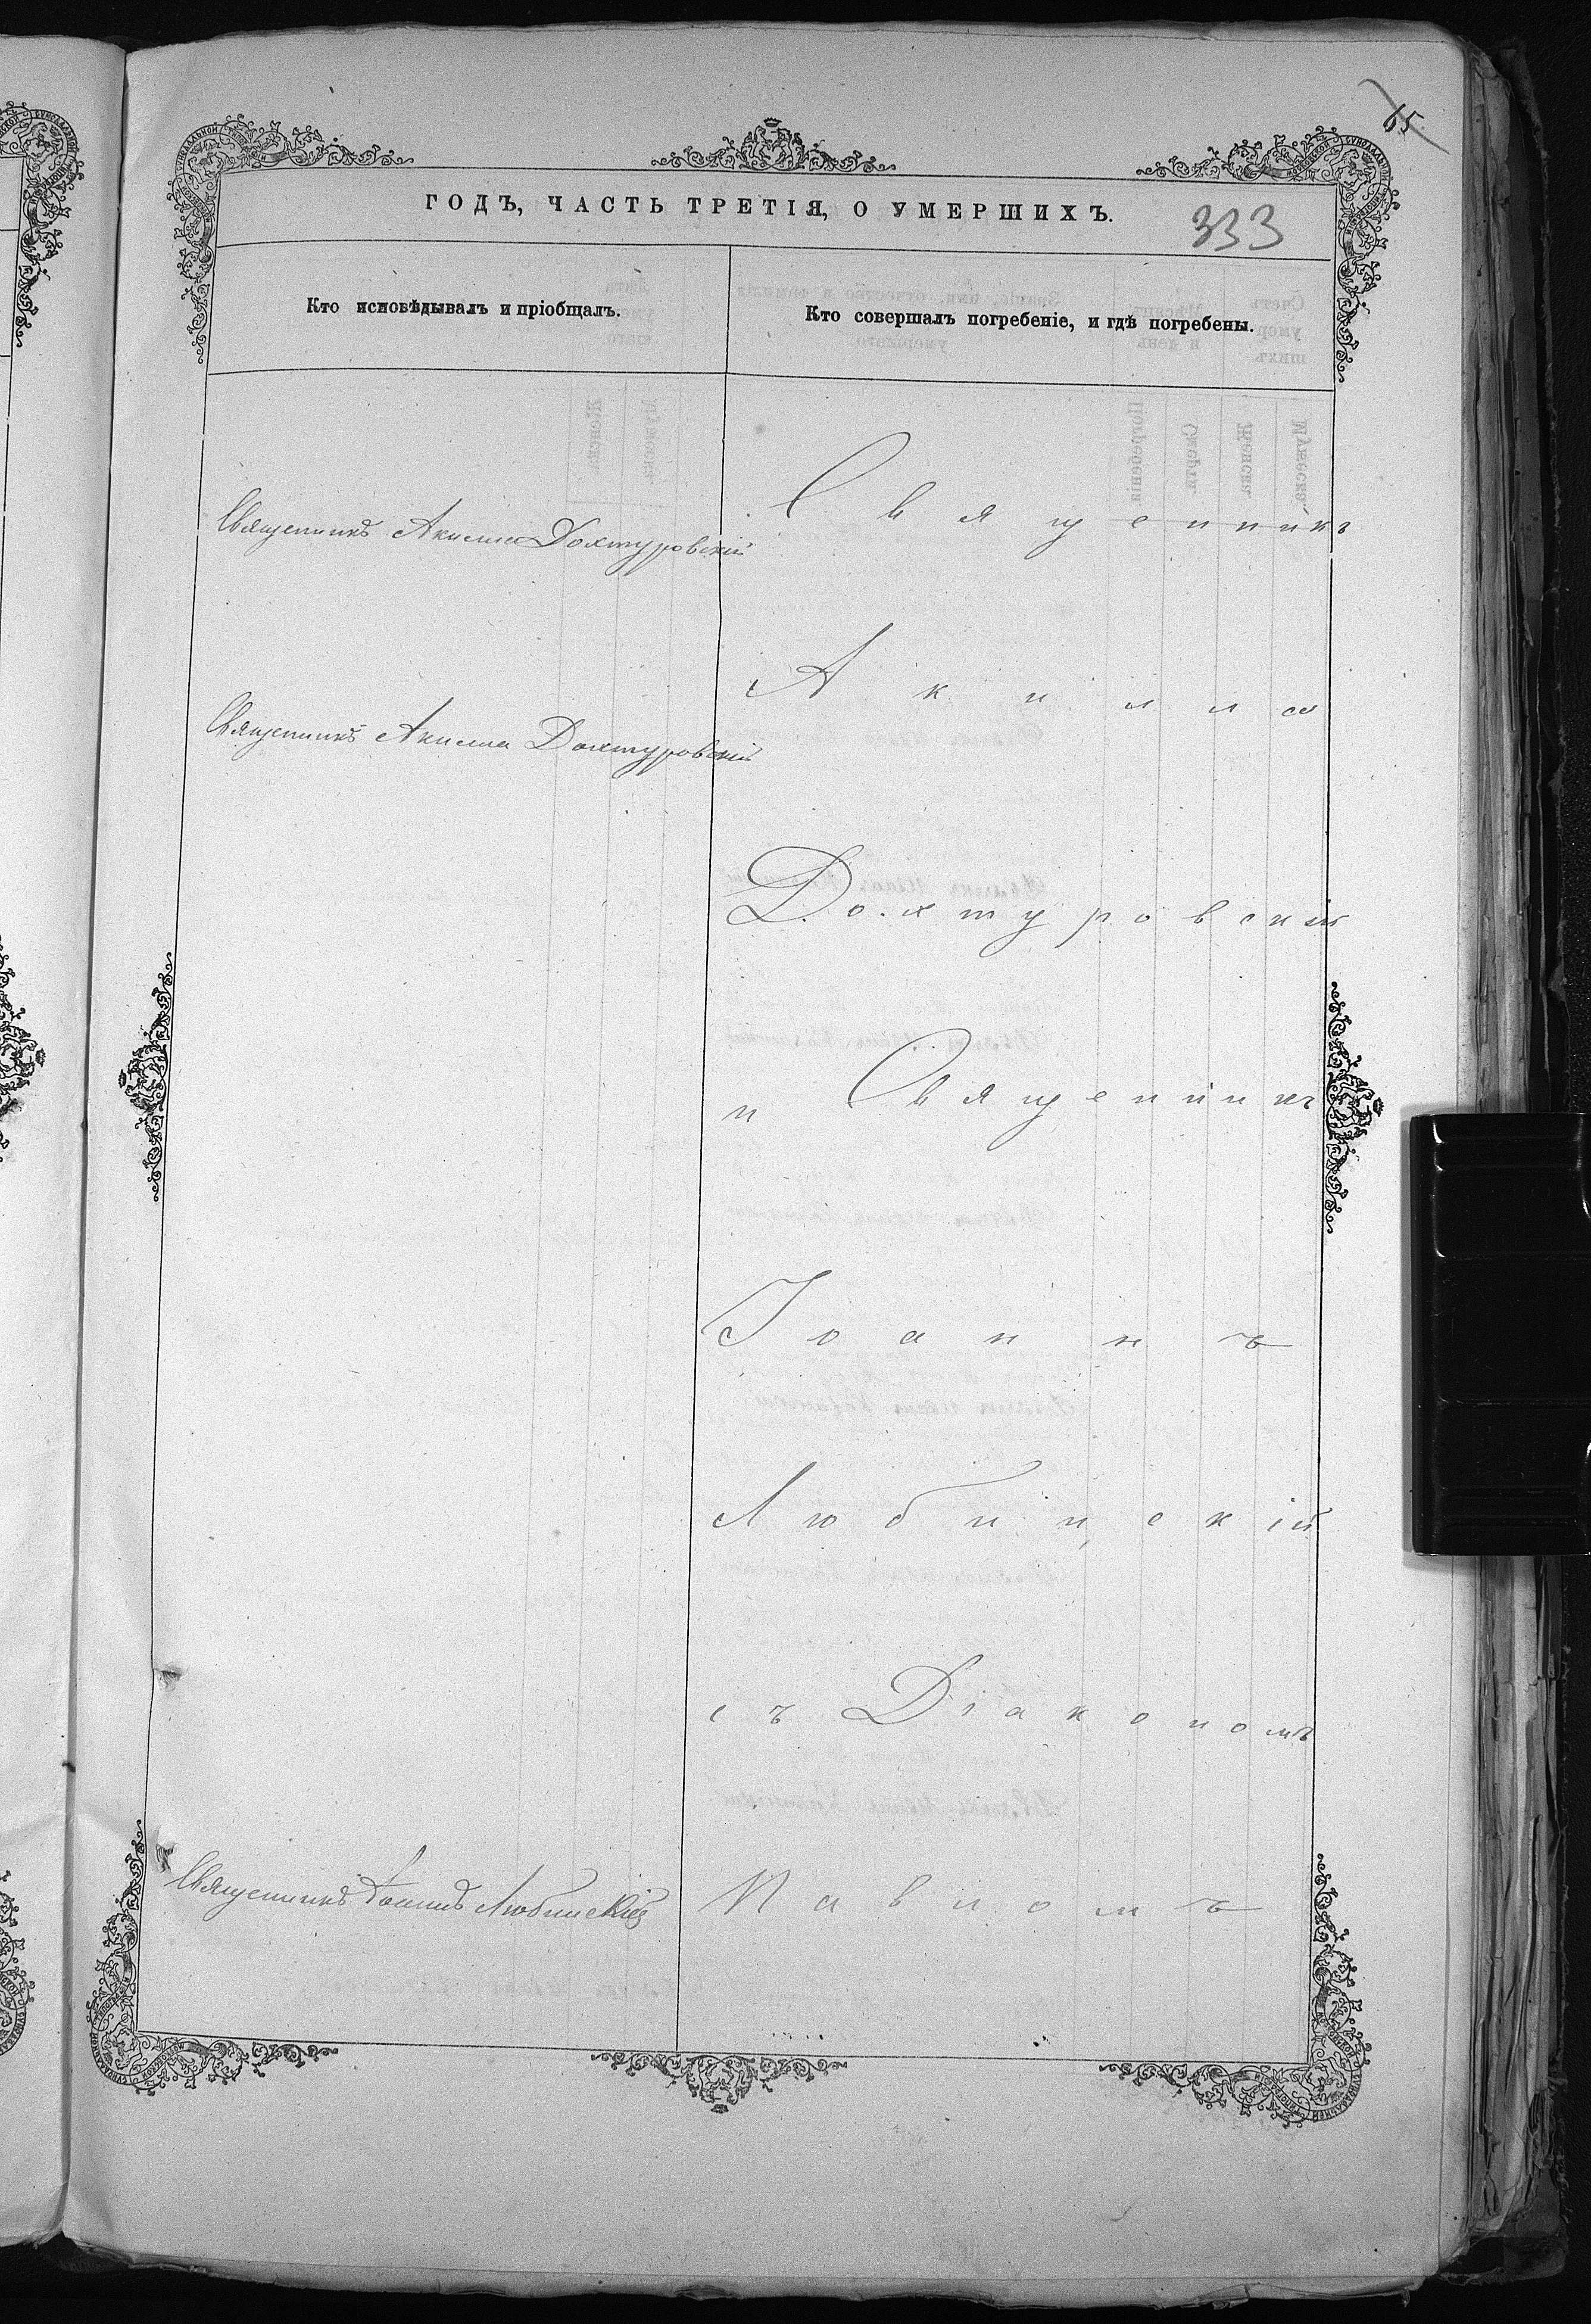 65
ГОДЪ, ЧАСТЬ ТРЕТІЯ, О УМЕРШИХЪ.
333
Кто исповѣдывалъ и пріобщалъ.
Кто совершалъ погребеніе, и гдѣ погребены.
Священникъ Акилла Дохтуровскій
Священникъ Акилла Дохтуровскій
Священникъ Іоаннъ Любинскій
Священникъ
Акилла
Дохтуровскій
и Священникъ
Іоаннъ
Любинскій
съ Діакономъ
Павломъ